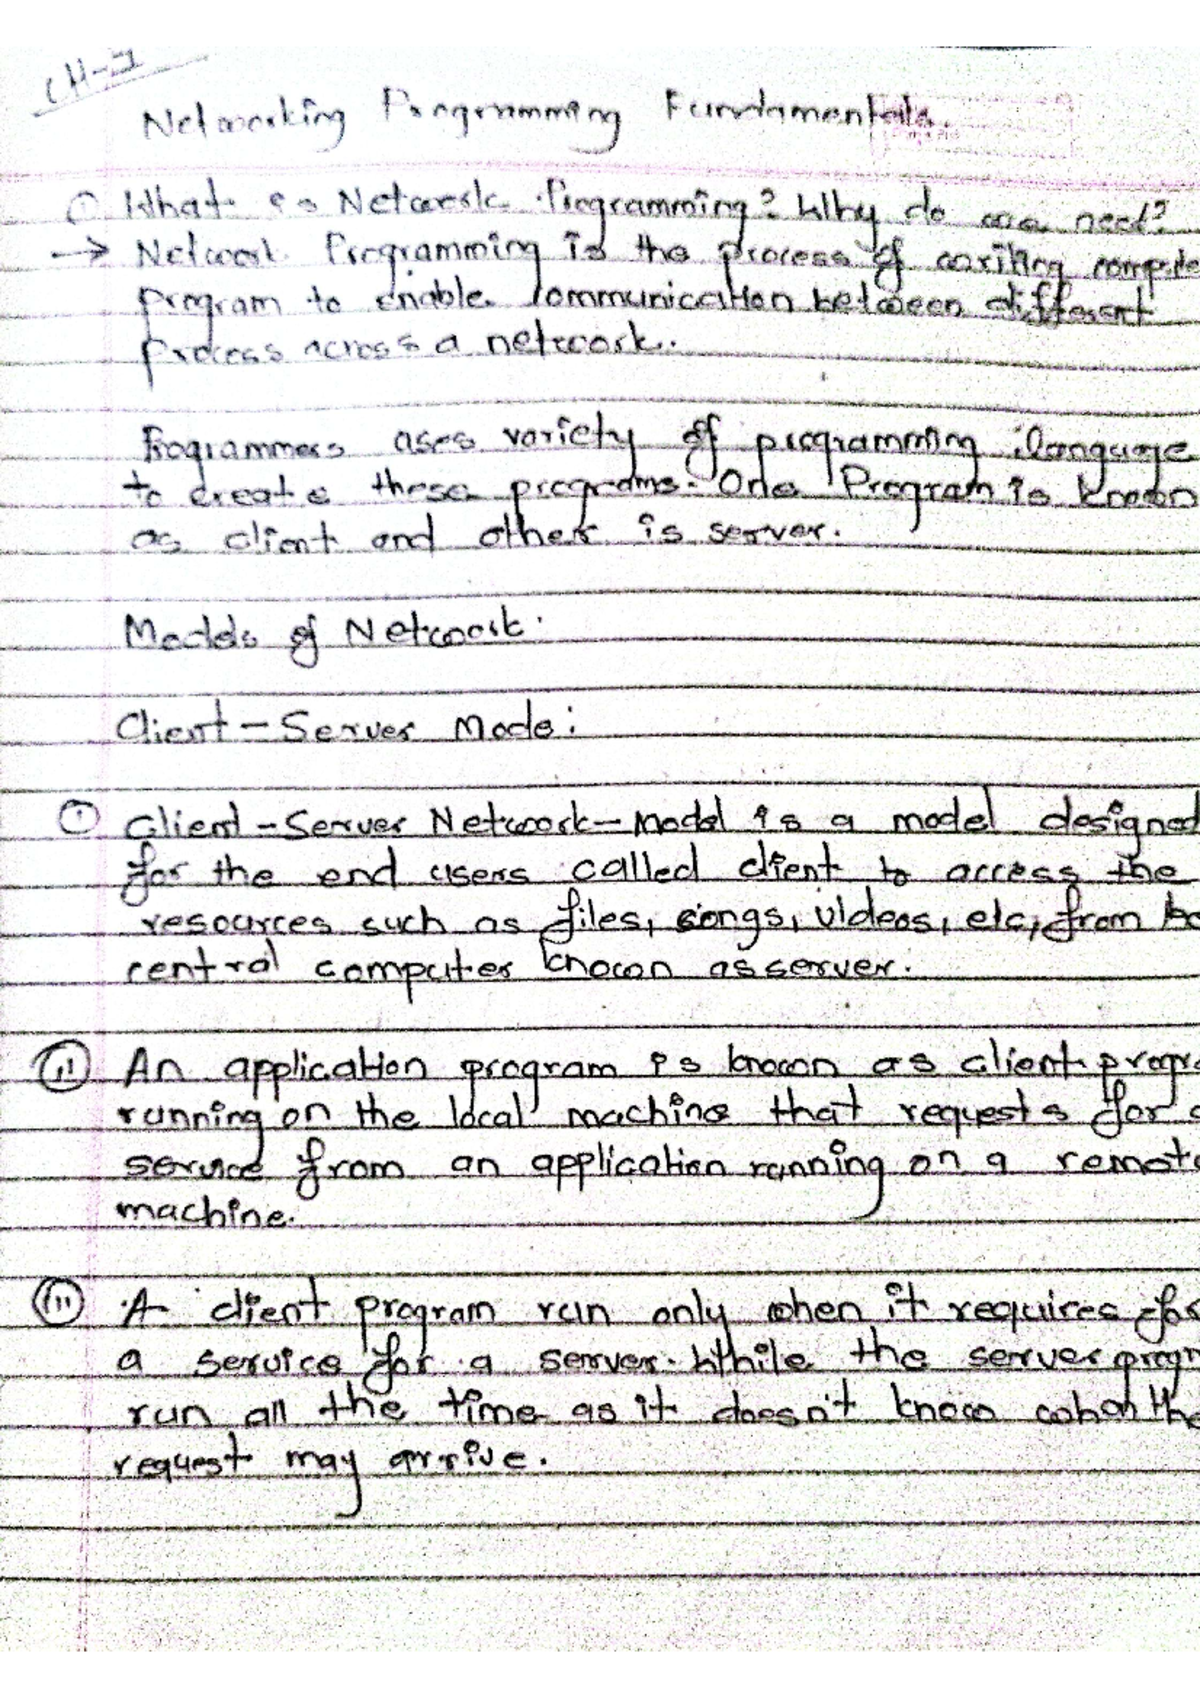 CH-1
Networking Programming Fundamentals.
① What is Network Programming? Why do we need?
→ Network Programming is the process of writing compute
program to enable communication between different
process across a network.
Programmers uses variety of programming language
to create these programs. One Program is known
as client and other is server.
Models of Network.
Client-Server Mode:
① Client-Server Network-Model is a model designed
for the end users called client to access the
resources such as files, songs, videos, etc, from
central computer known as server.
(ii) An application program is known as client progra
running on the local machine that requests for
service from an application running on a remote
machine.
(iii) A client program run only when it requires for
a service for a server. While the server progr
run all the time as it doesn't know when the
request may arrive.